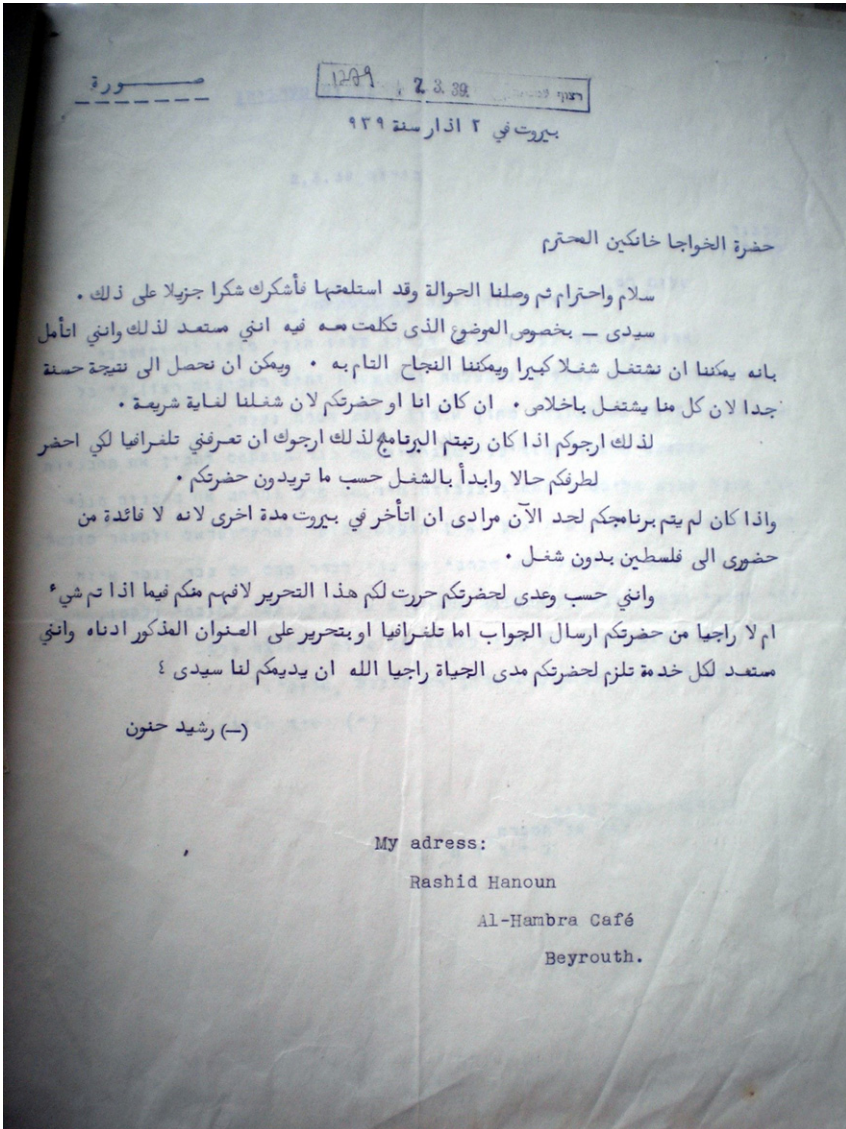 صورة
1279 2.3.39
بيروت في ٢ اذار سنة ٩٣٩
حضرة الخواجا خانكين المحترم
سلام واحترام ثم وصلنا الحوالة وقد استلمتها فأشكرك شكرا جزيلا على ذلك .
سيدى — بخصوص الموضوع الذى تكلمت معه فيه انني مستعد لذلك وانني اتأمل
بانه يمكننا ان نشتغل شغلا كبيرا ويمكننا النجاح التام به . ويمكن ان نحصل الى نتيجة حسنة
جدا لان كل منا يشتغل باخلاص . ان كان انا او حضرتكم لان شغلنا لغاية شريفة .
لذلك ارجوكم اذا كان رتبتم البرنامج لذلك ارجوك ان تعرفني تلغرافيا لكي احضر
لطرفكم حالا وابدأ بالشغل حسب ما تريدون حضرتكم .
واذا كان لم يتم برنامجكم لحد الآن مرادى ان اتأخر في بيروت مدة اخرى لانه لا فائدة من
حضورى الى فلسطين بدون شغل .
وانني حسب وعدى لحضرتكم حررت لكم هذا التحرير لافهم منكم فيما اذا تم شيء
ام لا راجيا من حضرتكم ارسال الجواب اما تلغرافيا او بتحرير على العنوان المذكور ادناه وانني
مستعد لكل خدمة تلزم لحضرتكم مدى الحياة راجيا الله ان يديمكم لنا سيدى ٤
(—) رشيد حنون
My adress:
Rashid Hanoun
Al-Hambra Café
Beyrouth.